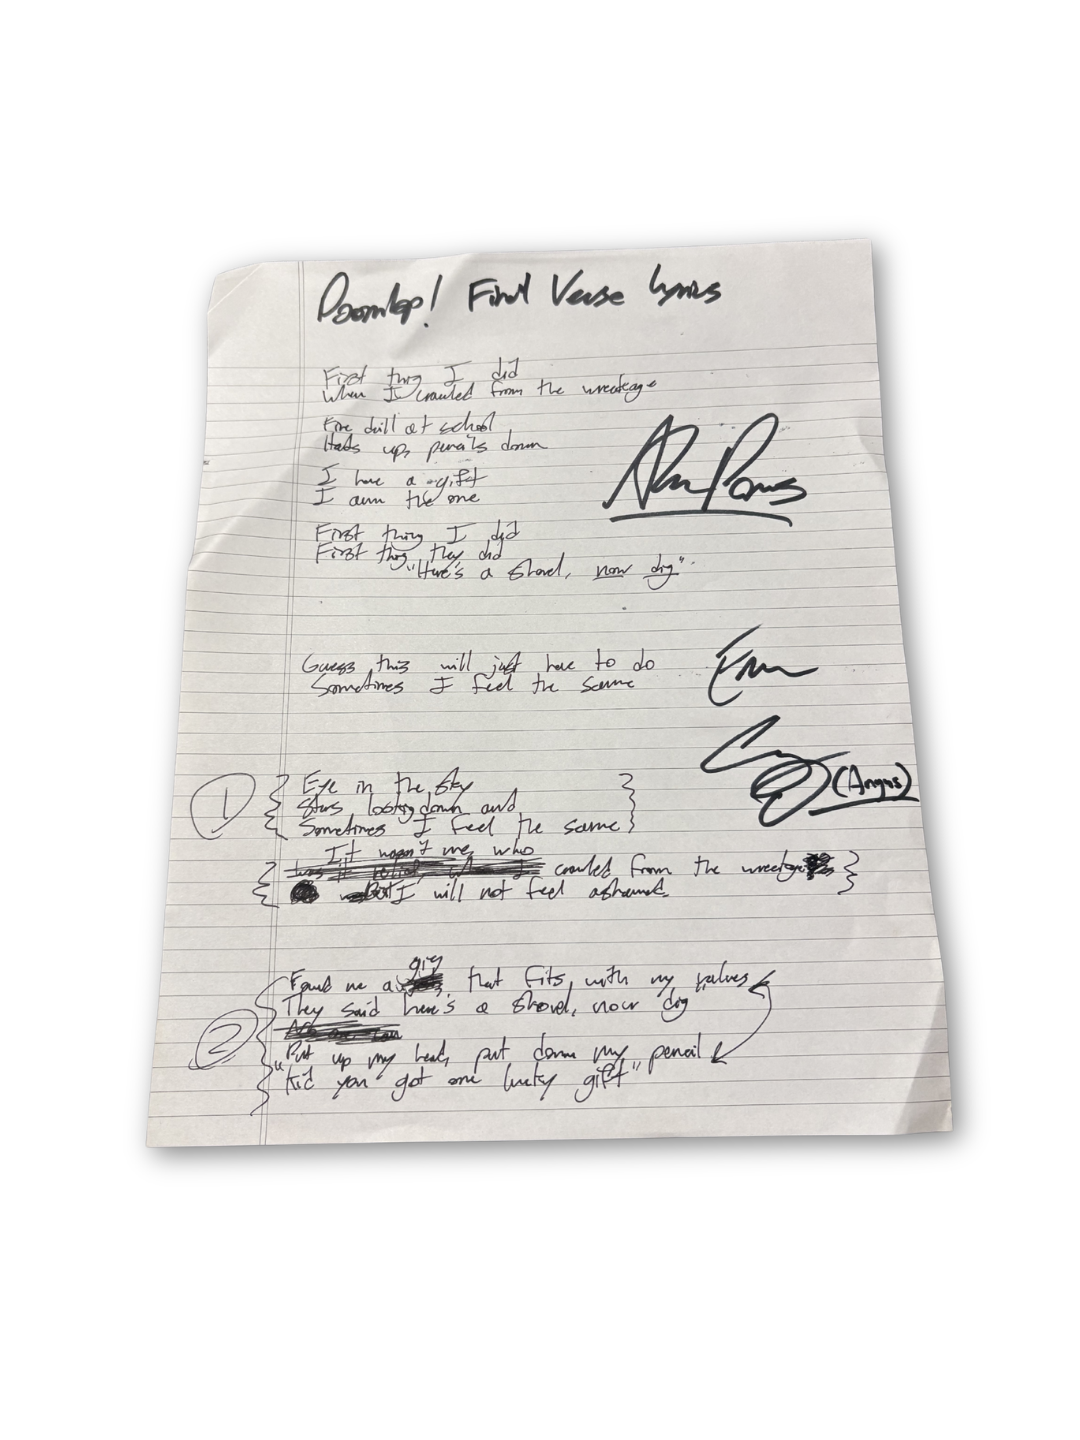 Doomlop! Final Verse Lyrics
First thing I did
When I crawled from the wreckage
Fire drill at school
Heads up, pencils down
I have a gift
I am the one
First thing I did
First thing they did
"Here's a shovel, now dig"
Guess this will just have to do
Sometimes I feel the same
(Angus)
1
Eye in the sky
Stars looking down and
Sometimes I feel the same
It wasn't me who
crawled from the wreckage
But I will not feel ashamed
gig
Found me a that fits with my values
They said here's a shovel, now dig
2
"Put up my head, put down my pencil
Kid you got one lucky gift"